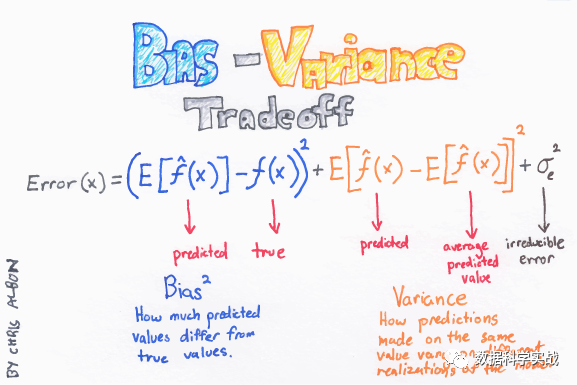 BIAS - VARIANCE
TRADEOFF
Error(x) = (E[f̂(x)] - f(x))² + E[f̂(x) - E[f̂(x)]]² + σₑ²
predicted true predicted average predicted value irreducible error
Bias²
How much predicted
values differ from
true values.
Variance
How predictions
made on the same
value vary on different
realizations of the model
数据科学实战
BY CHRIS ALBON